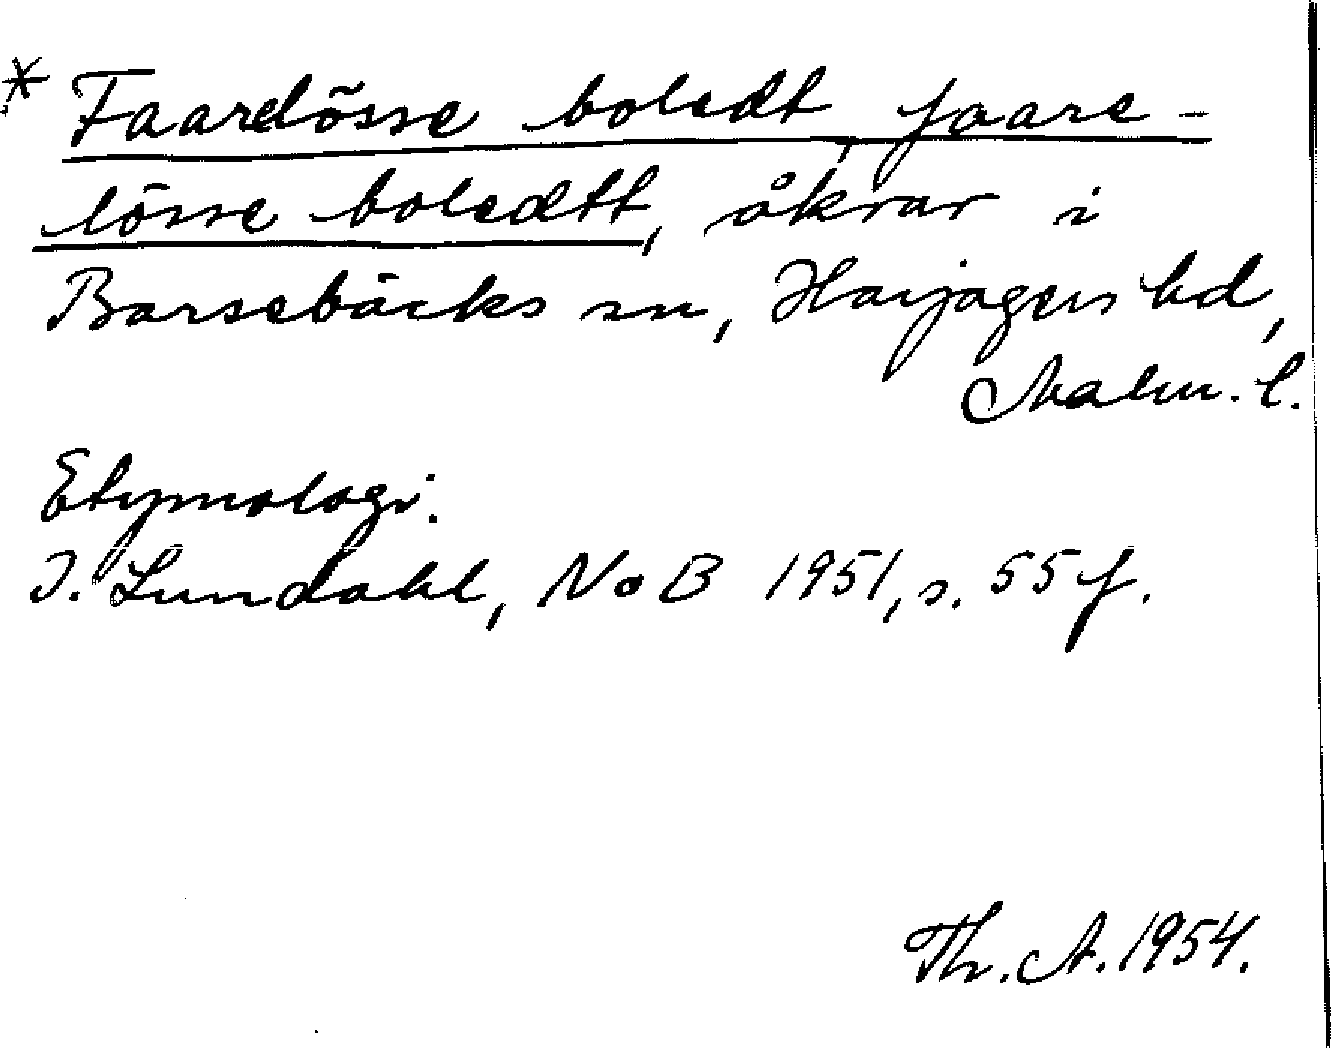 * Faarelösse boledt, faare-
lösse boledtt, åkrar i
Barsebäcks sn, Harjagers hd,
Malm. l.
Etymologi:
I. Lundahl, NoB 1951, s. 55 f.
Th. A. 1954.